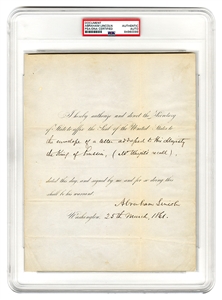 DOCUMENT
ABRAHAM LINCOLN
PSA/DNA CERTIFIED
AUTHENTIC
AUTO
PSA
I hereby authorize and direct the Secretary
of State to affix the Seal of the United States to
the envelope of a letter addressed to His Majesty
the King of
dated this day, and signed by me and for so doing this
shall be his warrant.
Abraham Lincoln
Washington, 28th March, 1861.